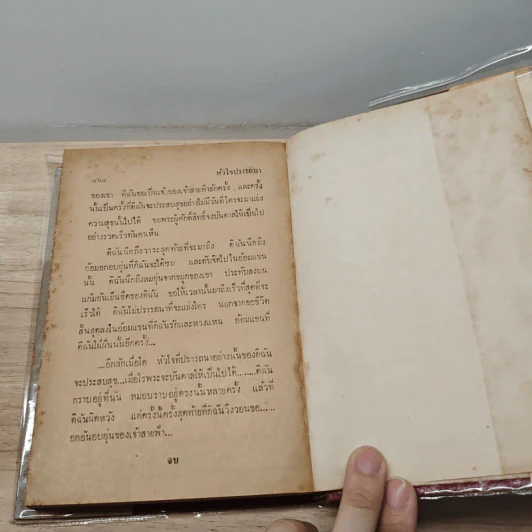 ๘๖๘ หัวใจปรารถนา
ของเขา ดิฉันขอเป็นเจ้าของเจ้าสายฟ้าสักครั้ง และครั้ง
นั้นเป็นครั้งที่ดิฉันจะประสบสุขอย่างไม่มีวันที่ใครจะมาแย่ง
ความสุขนั้นไปได้ ขอพระผู้ศักดิ์สิทธิ์จงบันดาลให้เป็นไป
อย่างรวดเร็วทันตาเห็น
ดิฉันนึกถึงวาระสุดท้ายที่จะมาถึง ดิฉันนึกถึง
อ้อมอกอบอุ่นที่ดิฉันจะได้ซบ และดับจิตไปในอ้อมแขน
นั้น ดิฉันนึกถึงลมอุ่นจากจมูกของเขา ประทับลงบน
แก้มอันเย็นชืดของดิฉัน ขอให้เวลานั้นมาถึงเร็วที่สุดที่จะ
เร็วได้ ดิฉันไม่ปรารถนาที่จะแย่งใคร นอกจากขอชีวิต
สิ้นสุดลงในอ้อมแขนที่ดิฉันรักและหวงแหน อ้อมแขนที่
ดิฉันใฝ่ฝันนั้นอีกครั้ง...
...อีกสักเมื่อใด หัวใจที่ปรารถนาอย่างนั้นของดิฉัน
จะประสบสุข...เมื่อไรพระจะบันดาลให้เป็นไปได้.......ดิฉัน
กราบอยู่ที่นั่น หมอบราบอยู่ตรงนั้นหลายครั้ง แล้วที่
ดิฉันผิดหวัง แต่ครั้งนี้ครั้งสุดท้ายที่ดิฉันวิงวอนขอ......
อกอันอบอุ่นของเจ้าสายฟ้า...
จบ